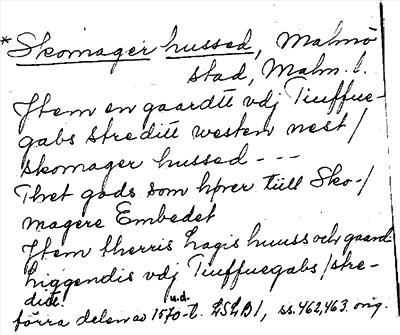 *Skomager hussed, Malmö
stad, Malm. l.
Jtem en gaardtt vdj Tiuffue-
gabs streditt westen nest/
skomager hussed - - -
Thet gods som hører tiill Sko-/
magere Embedet
Jtem therris Lagis huuss och gaard
liggendis vdj Tiuffuegabs/stre-
ditt.
u.d.
förra delen av 1570-t. LSLB1, ss. 462,463. orig.